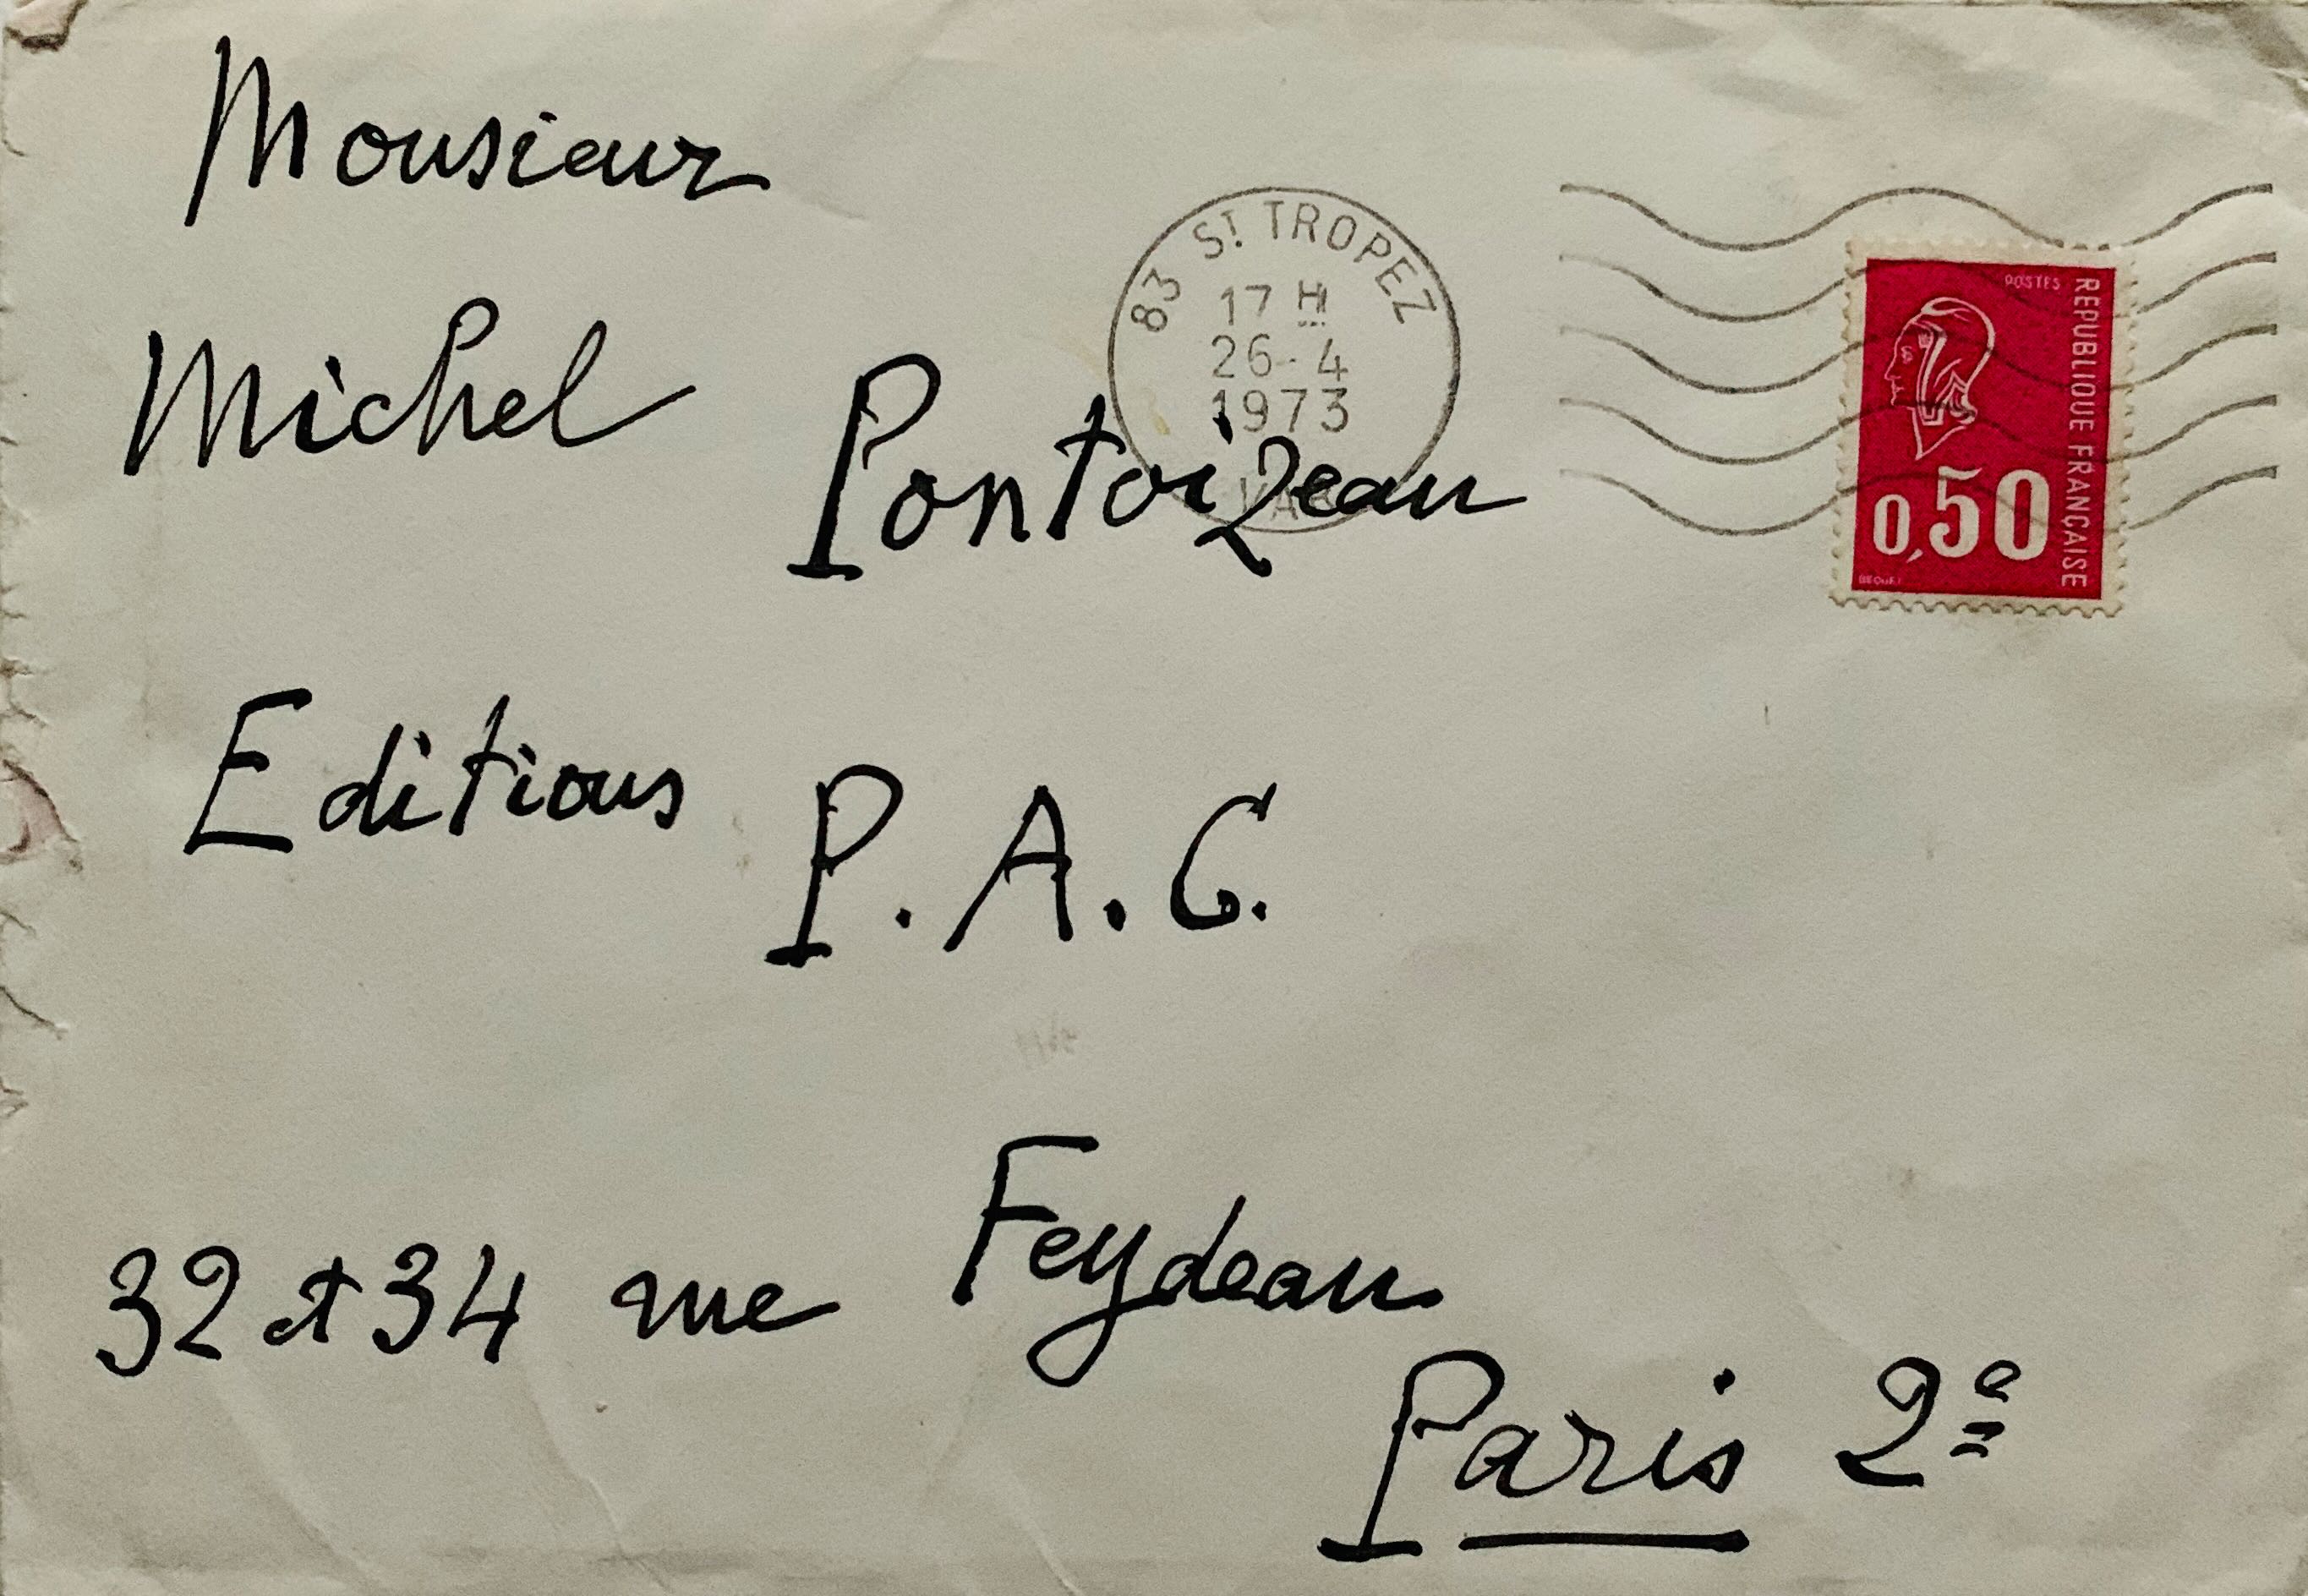 Monsieur
Michel Pontoizeau
Editions P.A.C.
32 et 34 rue Feydeau
Paris 2e
83 St TROPEZ
17 H
26-4
1973
VAR
POSTES
REPUBLIQUE FRANÇAISE
0,50
BEQUET